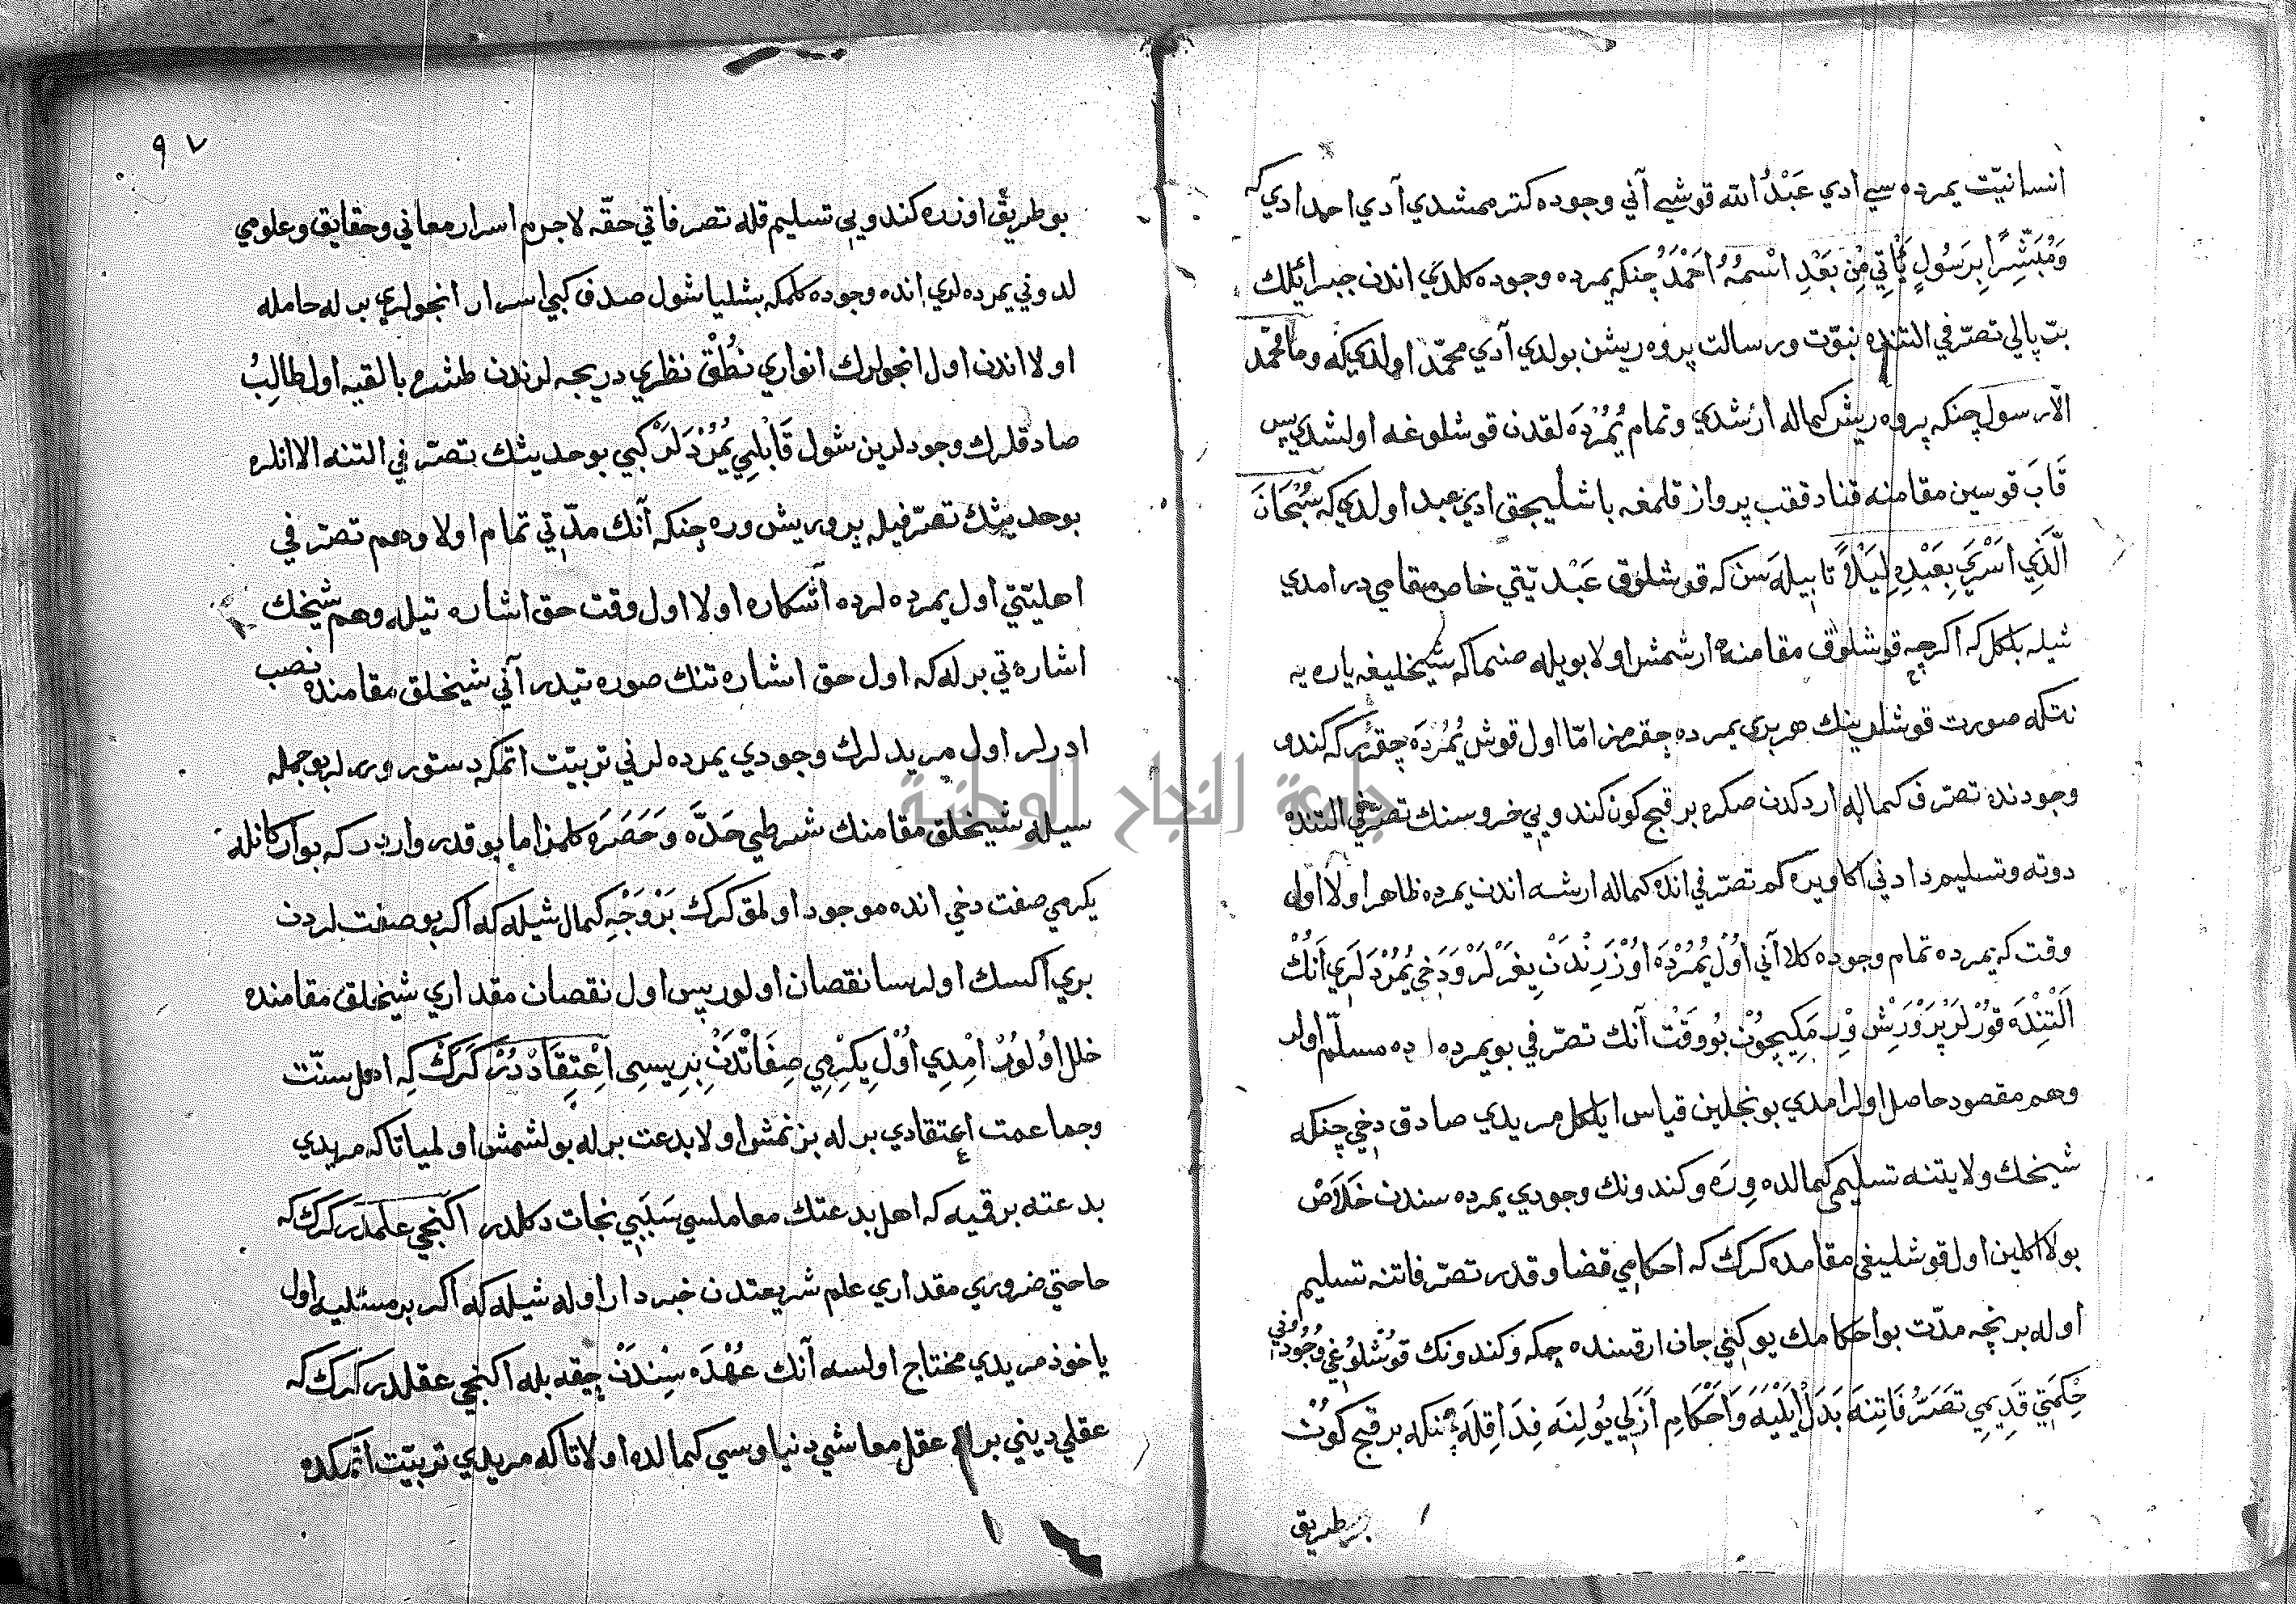 انسانيّت يمرده سي ادي عَبْدُ الله قوشي آني وجوده كترممشدي آدي احمد ادي كه
وَمُبَشِّرًا بِرَسُولٍ يَأْتِي مِن بَعْدِ اسْمُهُ اَحْمَدُ چنكه يمرده وجوده كلدي اندن جبرائيلك
پالي تصرّفي التنده نبوّت ورسالت پروه ريشن بولدي آدي محمّد اولديكه وما محمد
الا رسول چنكه پروه ريش كماله ارشدي وتمام يُمُرْدَه لقدن قوشلوغه اولشدي پس
قَابَ قوسين مقامنه قناد ققب پرواز قلمغه باشليجق ادي عبد اولدي كه سُبْحَانَ
الَّذِي اَسْرَى بِعَبْدِهِ لَيْلاً تا بيله سن كه قوشلوق عَبْد يّتي خاص مقامي در امدي
شيله بلكل كه اكرچه قوشلوق مقامنه ارشمش اولا بويله صنما كه شيخليغه ياره يه
نتكه صورت قوشلرينك هر بري يمرده چقرمز امّا اول قوش يُمُرْدَه چقرر كه كندو
وجودنده تصرّف كماله اردكدن صكره بر قچ كون كندويي خروسنك تصرّفي التنده
دوته وتسليم دادني اكا ويره كم تصرّفي انده كماله ارشه اندن يمرده ظاهر اولا اول
وقت كه يمرده تمام وجوده كلا آني اُول يُمُرْدَه اُوْزَرِنْدَنْ يِغَرْلَرْ وَدَخِي يُمُرْدَلَرِي اَنُكْ
اَلْتِنْدَه قُورْلَرْ پَرْوَرِشْ وِرْمَكِيچُوْن بُو وَقْتْ آنك تصرّفي بو يمرده ده مسلّم اولر
وهم مقصود حاصل اولر امدي بونجلين قياس ايلكل مريدي صادق دخي چنكه
شيخك ولايتنه تسليمي كمالده وِرَه وكندونك وجودي يمرده سندن خَلاَصْ
بولا اكلين اول قوشليغي مقامده كرك كه احكامي قضا وقدر تصرّفاتنه تسليم
اوله بر نچه مدّت بو احكامك يوكني جان ارقسنده چكه وكندونك قوُشْلُوغِي وُجُودِنِي
حِكْمَتِي قَدِيمِي تَصَرُّفَاتِنَه بَدَلْ اَيْلِيَه وَاَحْكَامِ اَزَلِي يُولِنَه فِدَا قِلَه نتكه بر قچ كوُن
بر طريق
٩٧
بو طريق اوزره كندويي تسليم قله تصرفاتي حقّه لاجرم اسرار معاني وحقايق وعلومي
لدوني يمرده لري انده وجوده كلمكه بشليا شول صدف كبي اسرار انجولري بر له حامله
اولا اندن اول انجولرك انواري نُطْق نظري دريچه لرندن طشره بالقيه اول طالبُ
صادقلرك وجودلرين شول قَابْلِي يُمُرْدَلَرْ كبي بو حديثك تصرّفي التنه الا انلره
بو حديثك تصرّفيله پرورش وره چنكه آنك مدّتي تمام اولا وهم تصرّفي
اهليّتي اول يمرده لرده آشكاره اولا اول وقت حق اشارتيله وهم شيخك
اشارتي برله كه اول حق اشارتنك صورتيدر آني شيخلق مقامنده نصب
ادرلر اول مريدلرك وجودي يمرده لرني تربيّت اتمكه دستور ورلر بو جمله
سيله شيخلق مقامنك شرطي حَدَّه وَحَصَرَه كلمز اما بو قدر واردر كه بو اركانله
يكرمي صفت دخي انده موجود اولمق كرك بَرْ وَجْهِ كمال شيله كه اكر بو صفتلردن
بري اكسك اولرسا نقصان اولور پس اول نقصان مقداري شيخلق مقامنده
خلل اوُلوُرْ اِمْدِي اُوْل يِكِرْمِي صِفَاتْدَنْ بِرِيسِى اِعْتِقَادْدُرْ كَرَكْ كِه اهل سنّت
وجماعت اعتقادي برله بزنمش اولا بدعت برله بولشمش اولميا تا كه مريدي
بدعته برقيه كه اهل بدعتك معاملسي سَبَبِي نجات دكلدر اكنجي علمدر كرك كه
حاجتي ضروري مقداري علم شريعتدن خبردار اوله شيله كه اكر بر مسئليه اول
يا خوذ مريدي محتاج اولسه آنك عُهْدَه سِنْدَنْ چيقه بله اكنجي عقلدر كرك كه
عقلي ديني برله عقل معاشي دنياوسي كمالده اولا تا كه مريدي تربيّت اتمكده
جامعة النجاح الوطنية